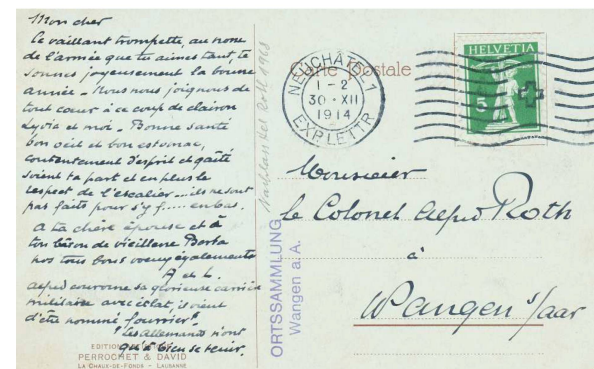 Mon cher
Ce vaillant trompette, au nom
de l'armée que tu aimes tant, te
sonnes joyeusement la bonne
année - Nous nous joignons de
tout cœur à ce coup de clairon
Lydie et moi - Bonne santé
bon œil et bon estomac,
contentement d'esprit et gaîté
soient ta part et en plus le
respect de l'escalier... ils ne sont
pas faits pour s'y f.... en bas.
A ta chère épouse et à
ton de vieillesse Berta
nos tous bons vœux également
A et L.
Alfred couronne sa glorieuse carrière
militaire avec éclat, il vient
d'être nommé fourrier".
"Les Allemands n'ont
qu'à bien se tenir.
EDITION
PERROCHET & DAVID
LA CHAUX-DE-FONDS - LAUSANNE
1968
ORTSSAMMLUNG
Wangen a. A.
Carte Postale
NEUCHÂTEL 1
1-2
30·XII
1914
EXP. LETTR.
HELVETIA
5
Monsieur
le Colonel Alfred Roth
à
Wangen s/aar